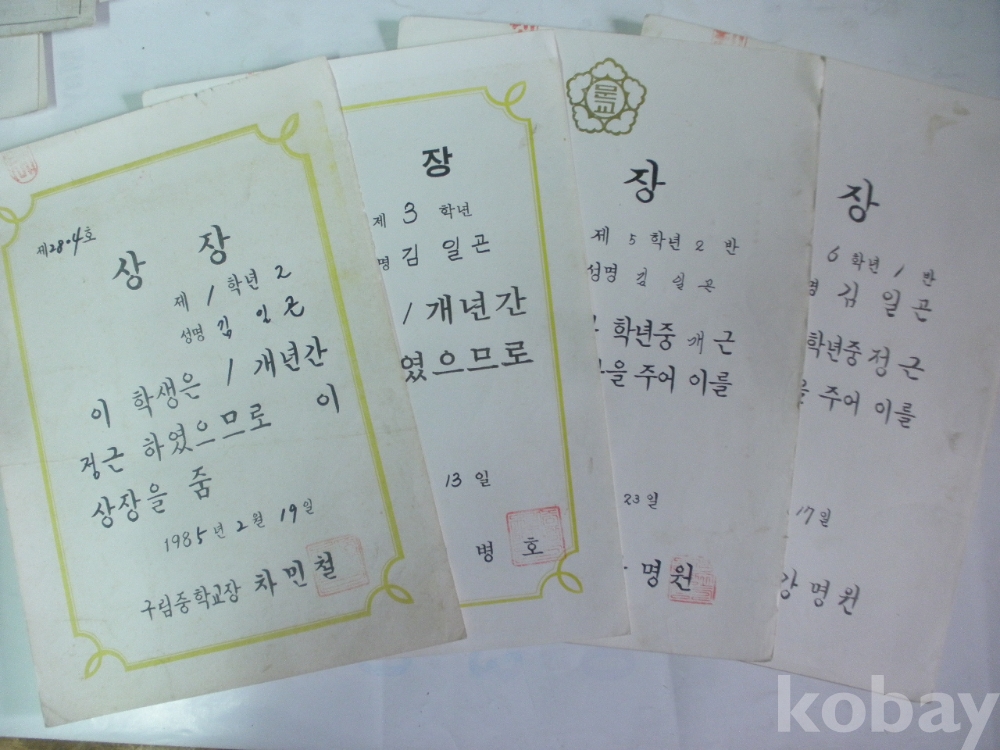 제28.4호
상 장
제 1 학년 2
성명 김 일 곤
이 학생은 1 개년간
정근 하였으므로 이
상장을 줌
1985년 2월 19일
구림중학교장 차민철
장
제 3 학년
명 김 일 곤
1 개년간
였으므로
13 일
병 호
문교
장
제 5 학년 2 반
성명 김 일 곤
학년중 개근
을 주어 이를
23일
명원
장
6 학년 1 반
명 김 일 곤
학년중 정근
을 주어 이를
17일
강명원
kobay